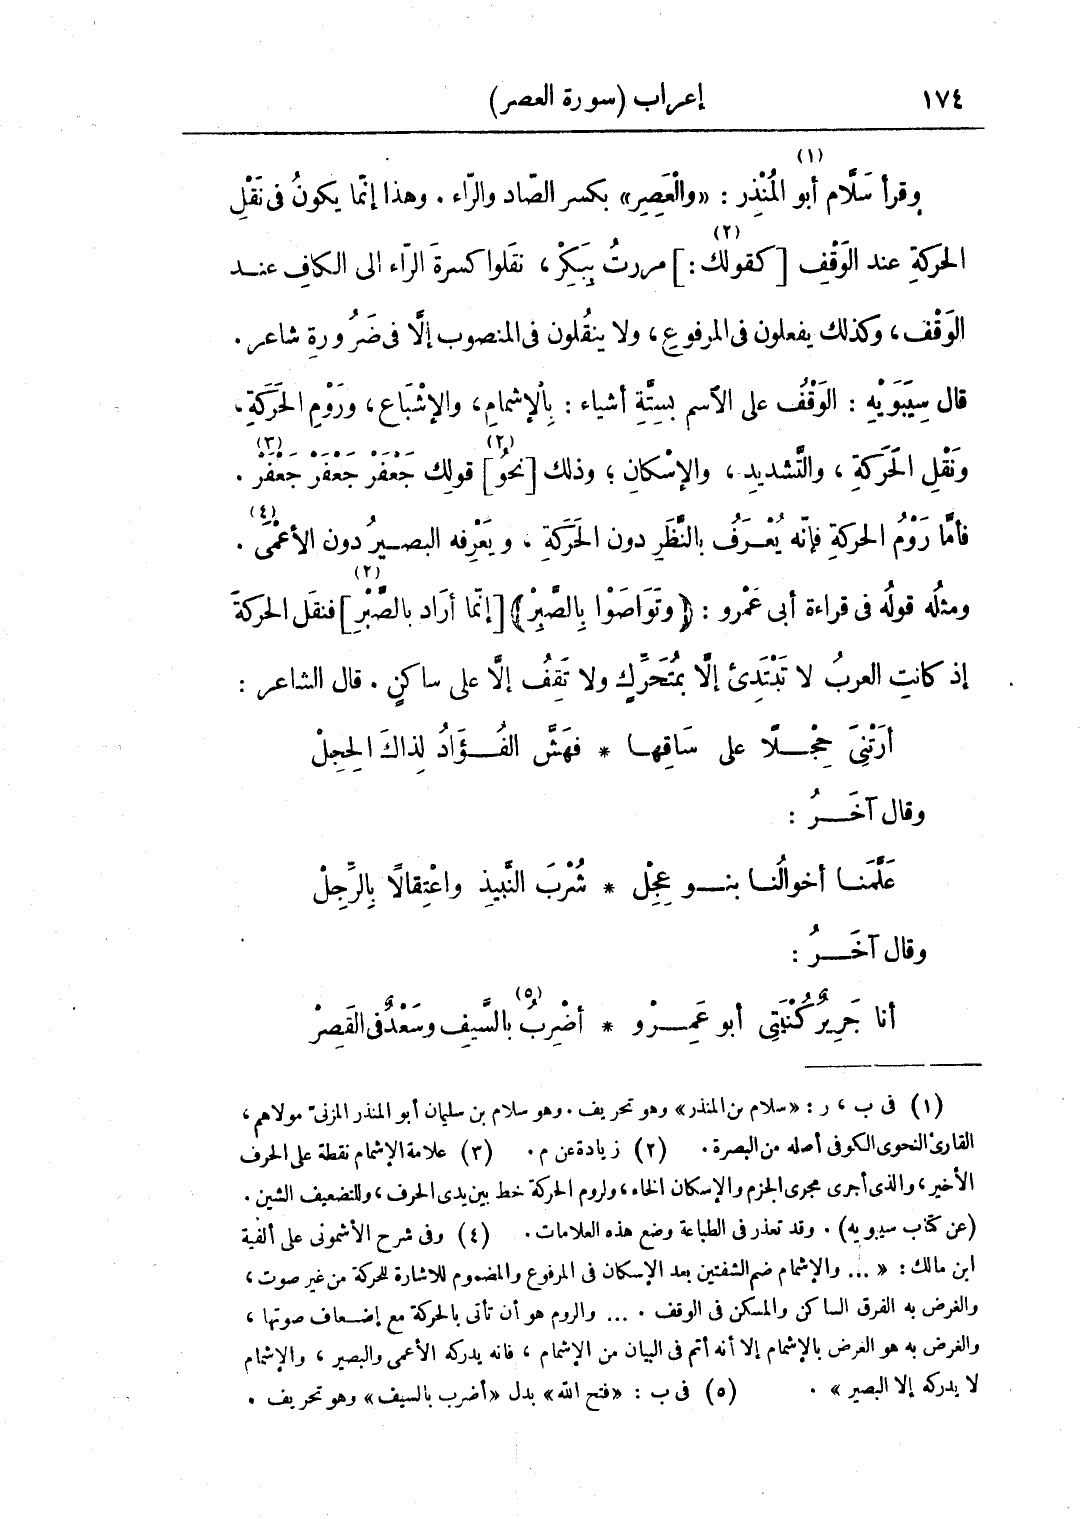 ١٧٤ إعراب (سورة العصر)
(١)
وقرأ سَلَّام أبو المُنْذِر : «والْعَصِرِ» بكسر الصّاد والرّاء . وهذا إنّما يكونُ فى نَقْلِ
(٢)
الحركةِ عند الوَقْفِ [كقولك:] مررتُ بِبَكِرْ، نقَلوا كسرةَ الرّاء الى الكافِ عنـد
الوَقْف، وكذلك يفعلون فى المرفوعِ، ولا ينقُلون فى المنصوب إلَّا فى ضَرُورةِ شاعر .
قال سِيبَوَيْهِ : الوَقْفُ على الاَسم بسِتَّةِ أشياء : بِالإشمامِ، والإشْبَاع، ورَوْمِ الحَرَكةِ،
(٢) (٣)
ونَقْلِ الحَرَكةِ، والتَّشديدِ، والإسْكانِ؛ وذلك [نحوُ] قولِك جَعْفَرْ جَعْفَرْ جَعْفَرْ .
(٤)
فأمَّا رَوْمُ الحركةِ فإنّه يُعْـرَفُ بالنَّظَرِ دون الحَرَكةِ ، ويَعْرِفه البصـيرُ دون الأعْمَى .
(٢)
ومثلُه قولُه فى قراءة أبى عَمْرو : ﴿وتَوَاصَوْا بِالصَّبِرْ﴾ [إنّما أرَاد بالصَّبْرِ] فنقَل الحركةَ
إذ كانتِ العربُ لا تَبْتَدِئ إلَّا بمُتَحَرِّكٍ ولا تَقِفُ إلَّا على ساكنٍ . قال الشاعر :
أرَتْنِىَ حِجْـلًا على سَاقِهـا * فهَشَّ الفُـؤَادُ لِذاكَ الحِجِلْ
وقال آخَـرُ :
عَلَّمَنـا أخوالُنـا بنـو عِجِلْ * شُرْبَ النَّبِيذِ واعْتِقالًا بِالرِّجِلْ
وقال آخَـرُ :
(٥)
أنا جَرِيرٌ كُنْيَتِى أبو عَمِـرْو * أضْرِبُ بالسَّيفِ وسَعْدٌ فى القَصِرْ
(١) فى ب ، ر : «سلام بن المنذر» وهو تحريف . وهو سلام بن سليمان أبو المنذر المزنىّ مولاهم،
القارئ النحوى الكوفى أصله من البصرة . (٢) زيادة عن م . (٣) علامة الإشمام نقطة على الحرف
الأخير، والذى أجرى مجرى الجزم والإسكان الخاء، ولروم الحركة خط بين يدى الحرف، وللتضعيف الشين .
(عن كتاب سيبويه) . وقد تعذر فى الطباعة وضع هذه العلامات . (٤) وفى شرح الأشمونى على ألفية
ابن مالك : « ... والإشمام ضم الشفتين بعد الإسكان فى المرفوع والمضموم للاشارة للحركة من غير صوت،
والغرض به الفرق الساكن والمسكن فى الوقف . ... والروم هو أن تأتى بالحركة مع إضعـاف صوتها ،
والغرض به هو الغرض بالإشمام إلا أنه أتم فى البيان من الإشمام ، فانه يدركه الأعمى والبصير ، والإشمام
لا يدركه إلا البصير » . (٥) فى ب : «فتح الله» بدل «أضرب بالسيف» وهو تحريف .